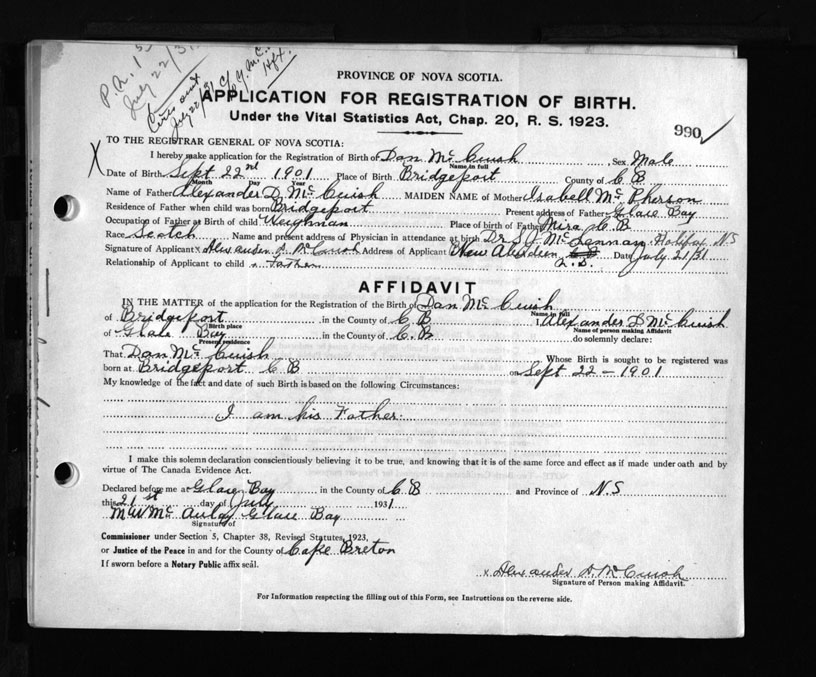 P.R. 1 50
July 22/31
Circ aux
July 22/31 C/o Y.M.C.
Hfx.
PROVINCE OF NOVA SCOTIA.
APPLICATION FOR REGISTRATION OF BIRTH.
Under the Vital Statistics Act, Chap. 20, R. S. 1923.
990
TO THE REGISTRAR GENERAL OF NOVA SCOTIA:
X
I hereby make application for the Registration of Birth of Dan Mc Cuish Sex Male
Name in full
Date of Birth Sept 22nd 1901 Place of Birth Bridgeport County of C B
Month Day Year
Name of Father Alexander D. Mc Cuish MAIDEN NAME of Mother Isabell Mc Pherson
Residence of Father when child was born Bridgeport Present address of Father Glace Bay
Occupation of Father at Birth of child Weighman Place of birth of Father Mira C. B
Race Scotch Name and present address of Physician in attendance at birth Dr S. J. Mc Lennan Halifax N.S
Signature of Applicant x Alexander D. McCuish Address of Applicant New Aberdeen C.B. Date July 21/31
Relationship of Applicant to child Father
AFFIDAVIT
IN THE MATTER of the application for the Registration of the Birth of Dan Mc Cuish
Name in full
of Bridgeport in the County of C B I, Alexander D McCuish
Birth place Name of person making Affidavit
of Glace Bay in the County of C. B do solemnly declare:
Present residence
That Dan Mc Cuish Whose Birth is sought to be registered was
born at Bridgeport C B on Sept 22 - 1901
My knowledge of the fact and date of such Birth is based on the following Circumstances:
I am his Father
I make this solemn declaration conscientiously believing it to be true, and knowing that it is of the same force and effect as if made under oath and by
virtue of The Canada Evidence Act.
Declared before me at Glace Bay in the County of C B and Province of N.S
this 21st day of July 1931
M W Mc Aulay Glace Bay
Signature of
Commissioner under Section 5, Chapter 38, Revised Statutes, 1923,
or Justice of the Peace in and for the County of Cape Breton
If sworn before a Notary Public affix seal.
x Alexander D. McCuish
Signature of Person making Affidavit.
For Information respecting the filling out of this Form, see Instructions on the reverse side.